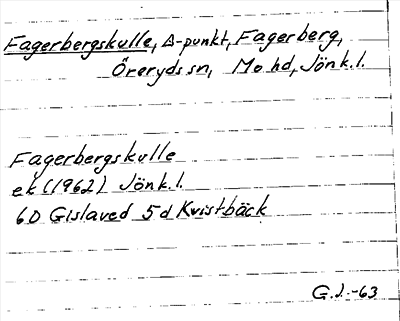 Fagerbergskulle, Δ-punkt, Fagerberg,
Öreryds sn, Mo hd, Jönk.l.
Fagerbergskulle
ek (1962) Jönk.l.
6D Gislaved 5d Kvistbäck
G.J.-63